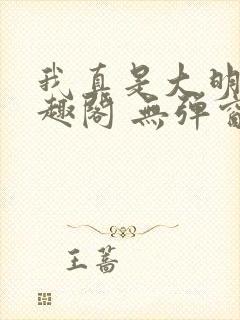 我真是大明
趣阁 無弹窗
王蔷